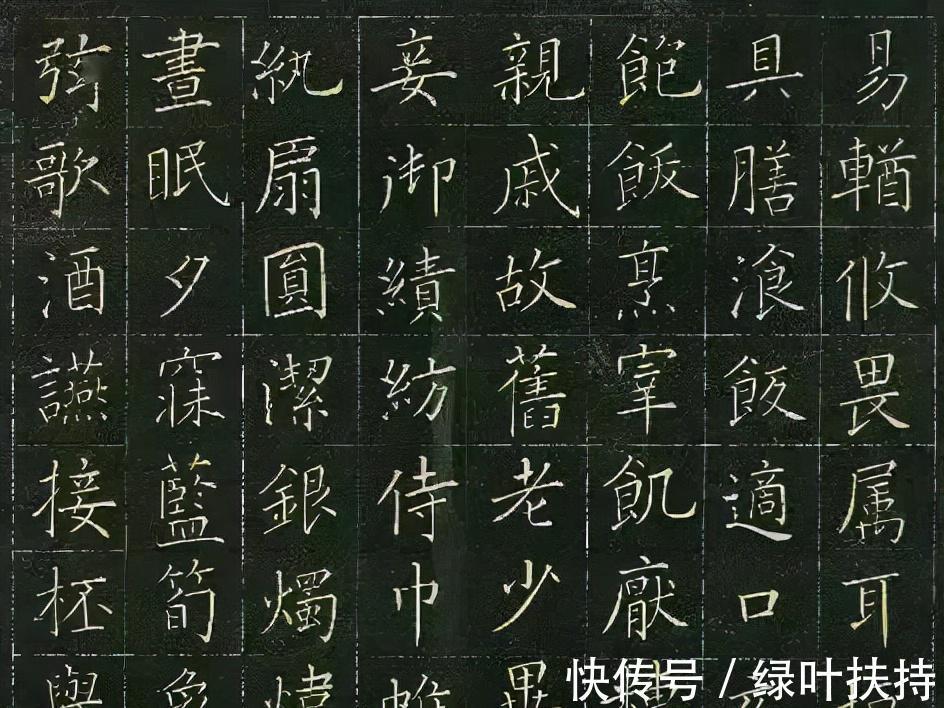 易輶攸畏属耳
具膳飡飯適口
飽飫烹宰飢厭
親戚故舊老少
妾御績紡侍巾
紈扇圓潔銀燭
晝眠夕寐藍筍
弦歌酒讌接杯
快传号 / 绿叶扶持